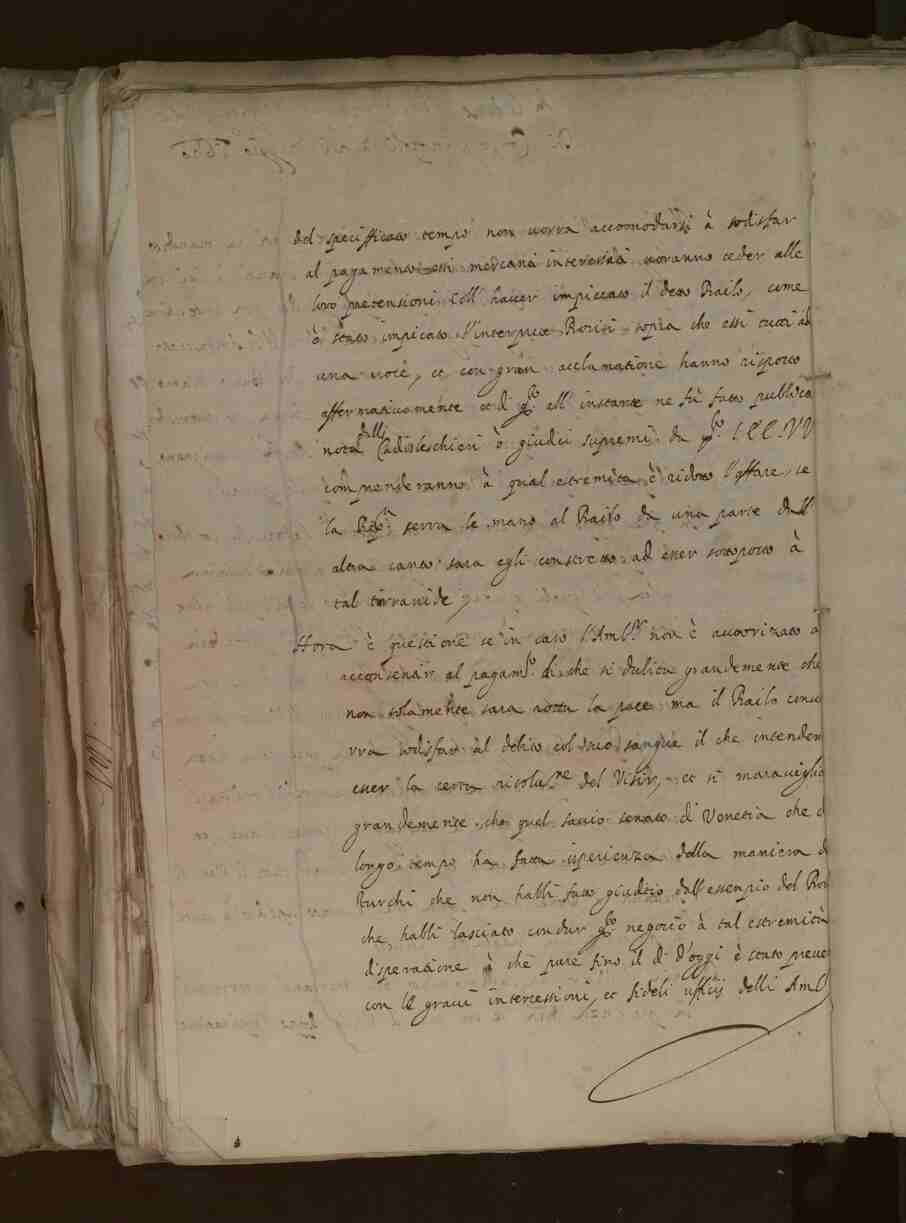 del specifficato tempo non vorrà accomodarsi à sodisfar
al pagamento essi mercanti interessati voranno ceder alle
loro pretensioni coll' haver impiccato il detto Bailo, come
è stato impicato l'interprete Borisi sopra che essi tutti ad
una voce, et con gran acclamatione hanno risposto
affermativamente et di q.to all' instante ne fù fatto publica
nota dalli Cadileschieri ò giudici supremi da q.to l'EE. VV
comprenderanno à qual estremità è ridotto l'affare, se
la Rep.ca serra le mano al Bailo da una parte dall'
altra canto sara egli constretto ad esser sottoposto à
tal tirranide,
Hora è questione se in caso l'Amb.r non è auttorizato à
acconsentir al pagam.to di che si dubita grandemente che
non solamente sara rotta la pace ma il Bailo conve
rra sodisfar al debito col suo sangue il che intenden
esser la certa risolut.ne del Visir, et si maraviglia
grandemente, che quel savio senato di Venetia che d
longo tempo ha fatta isperienza della maniera d
Turchi che non habbi fatto giuditio dall'essempio del Bor
che habbi lasciato condur q.to negotio à tal estremità
disperatione à che pure fino il dì d'oggi è stato preve
con le gravi intercessioni, et fideli ufficij delli Amb